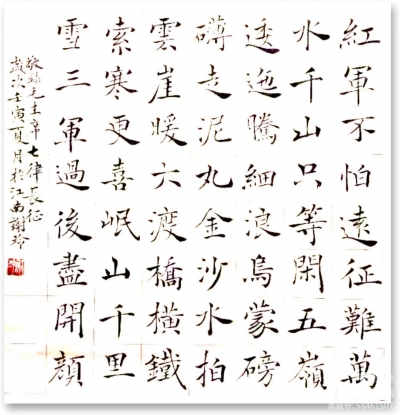 紅軍不怕遠征難萬
水千山只等閑五嶺
逶迤騰細浪烏蒙磅
礴走泥丸金沙水拍
雲崖暖大渡橋橫鐵
索寒更喜岷山千里
雪三軍過後盡開顏
敬錄毛主席七律長征
歲次壬寅夏月於江南謝玲